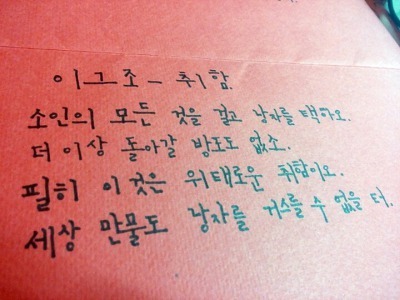 이그조 - 취함.
소인의 모든 것을 걸고 낭자를 택하오.
더 이상 돌아갈 방도도 없소.
필히 이것은 위태로운 취함이오.
세상 만물도 낭자를 거스를 수 없을 터.